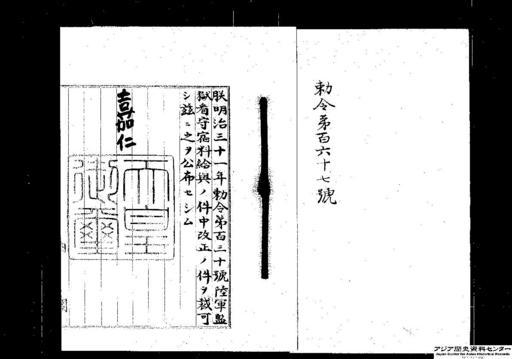 勅令第百六十七號
朕明治三十一年勅令第百三十號陸軍監
獄看守宿料給與ノ件中改正ノ件ヲ裁可
シ茲ニ之ヲ公布セシム
嘉仁
天皇御璽
アジア歴史資料センター
Japan Center for Asian Historical Records